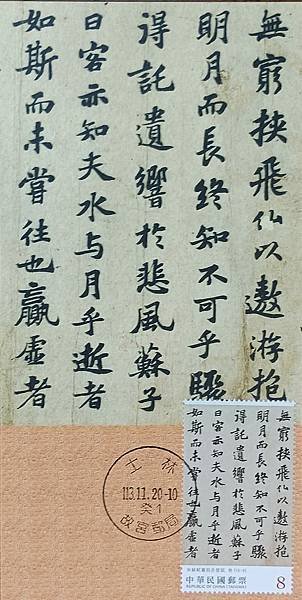 無窮挾飛仙以遨游抱
明月而長終知不可乎驟
得託遺響於悲風蘇子
曰客亦知夫水与月乎逝者
如斯而未嘗往也贏虛者
士林
113.11.20-10
癸1
故宮郵局
無窮挾飛仙以遨游抱
明月而長終知不可乎驟
得託遺響於悲風蘇子
曰客亦知夫水与月乎逝者
如斯而未嘗往也贏虛者
中華民國郵票
REPUBLIC OF CHINA (TAIWAN)
8